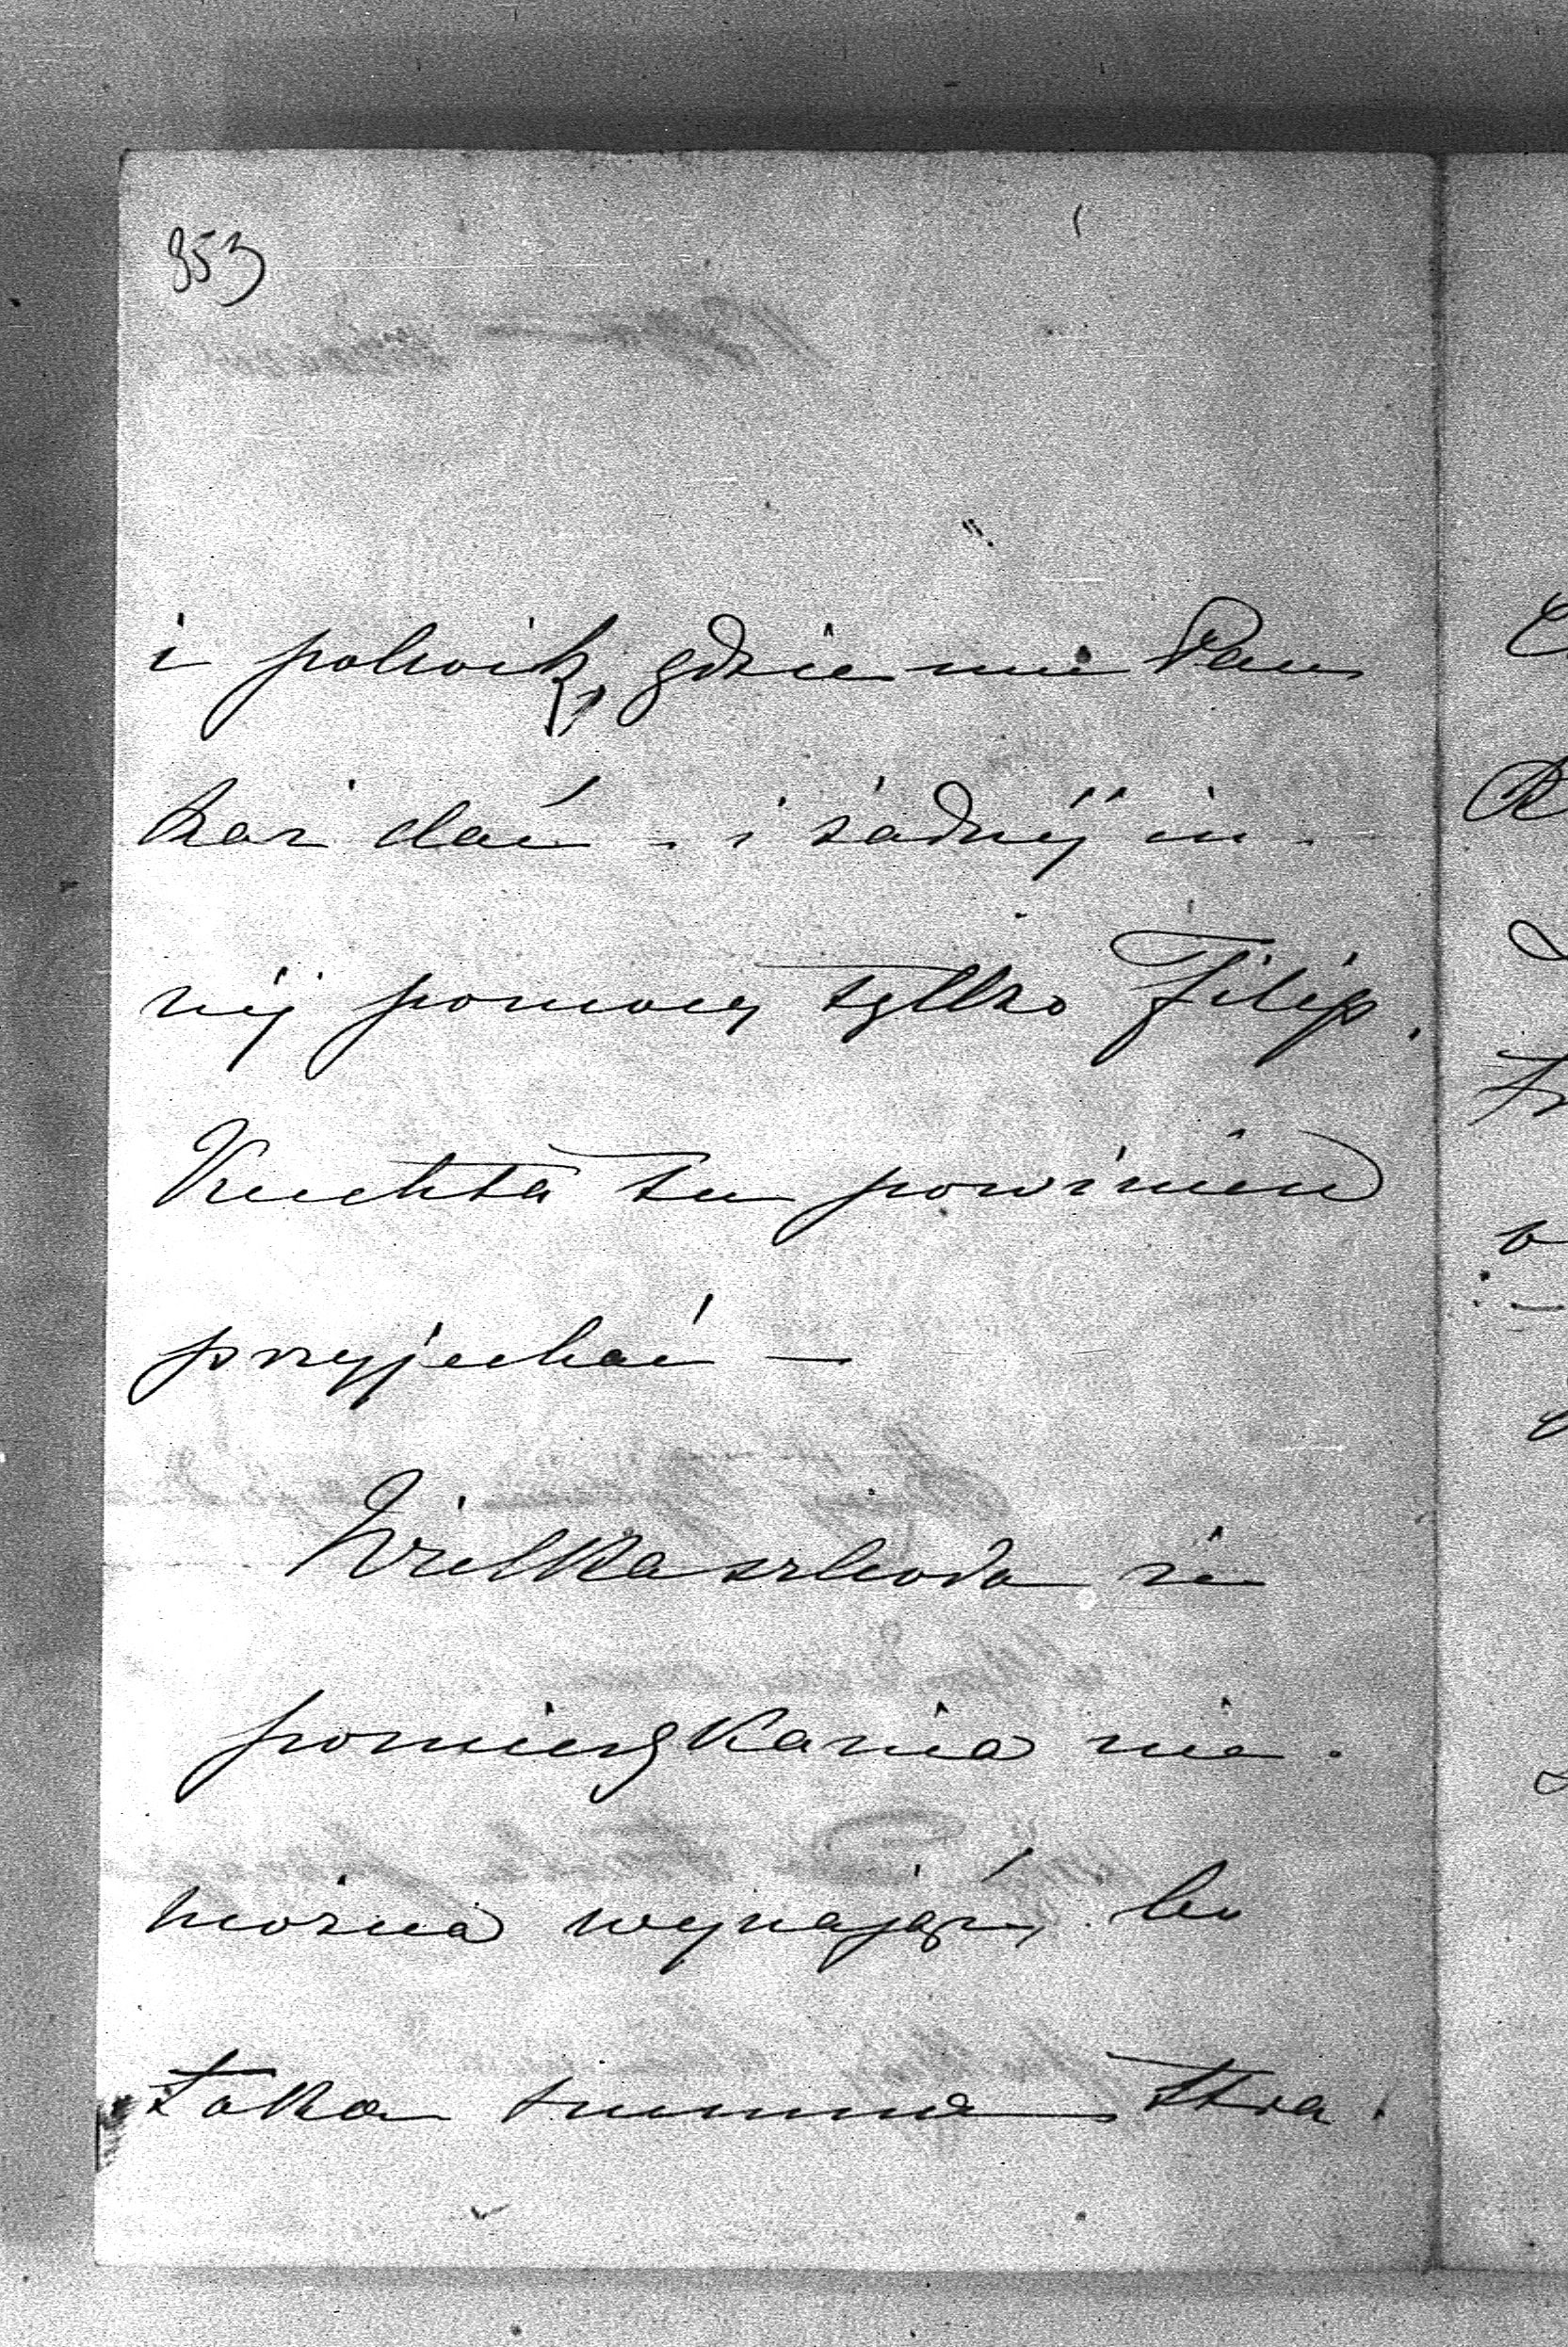 853
i pokoik, gdzie mu Pan
każ dać - i żadnéj in-
néj pomocy tylko Filip.
Kuchta tu powinien
przyjechać —
Wielka szkoda że
pomieszkania nie-
można wynająć, bo
taka summa stra-